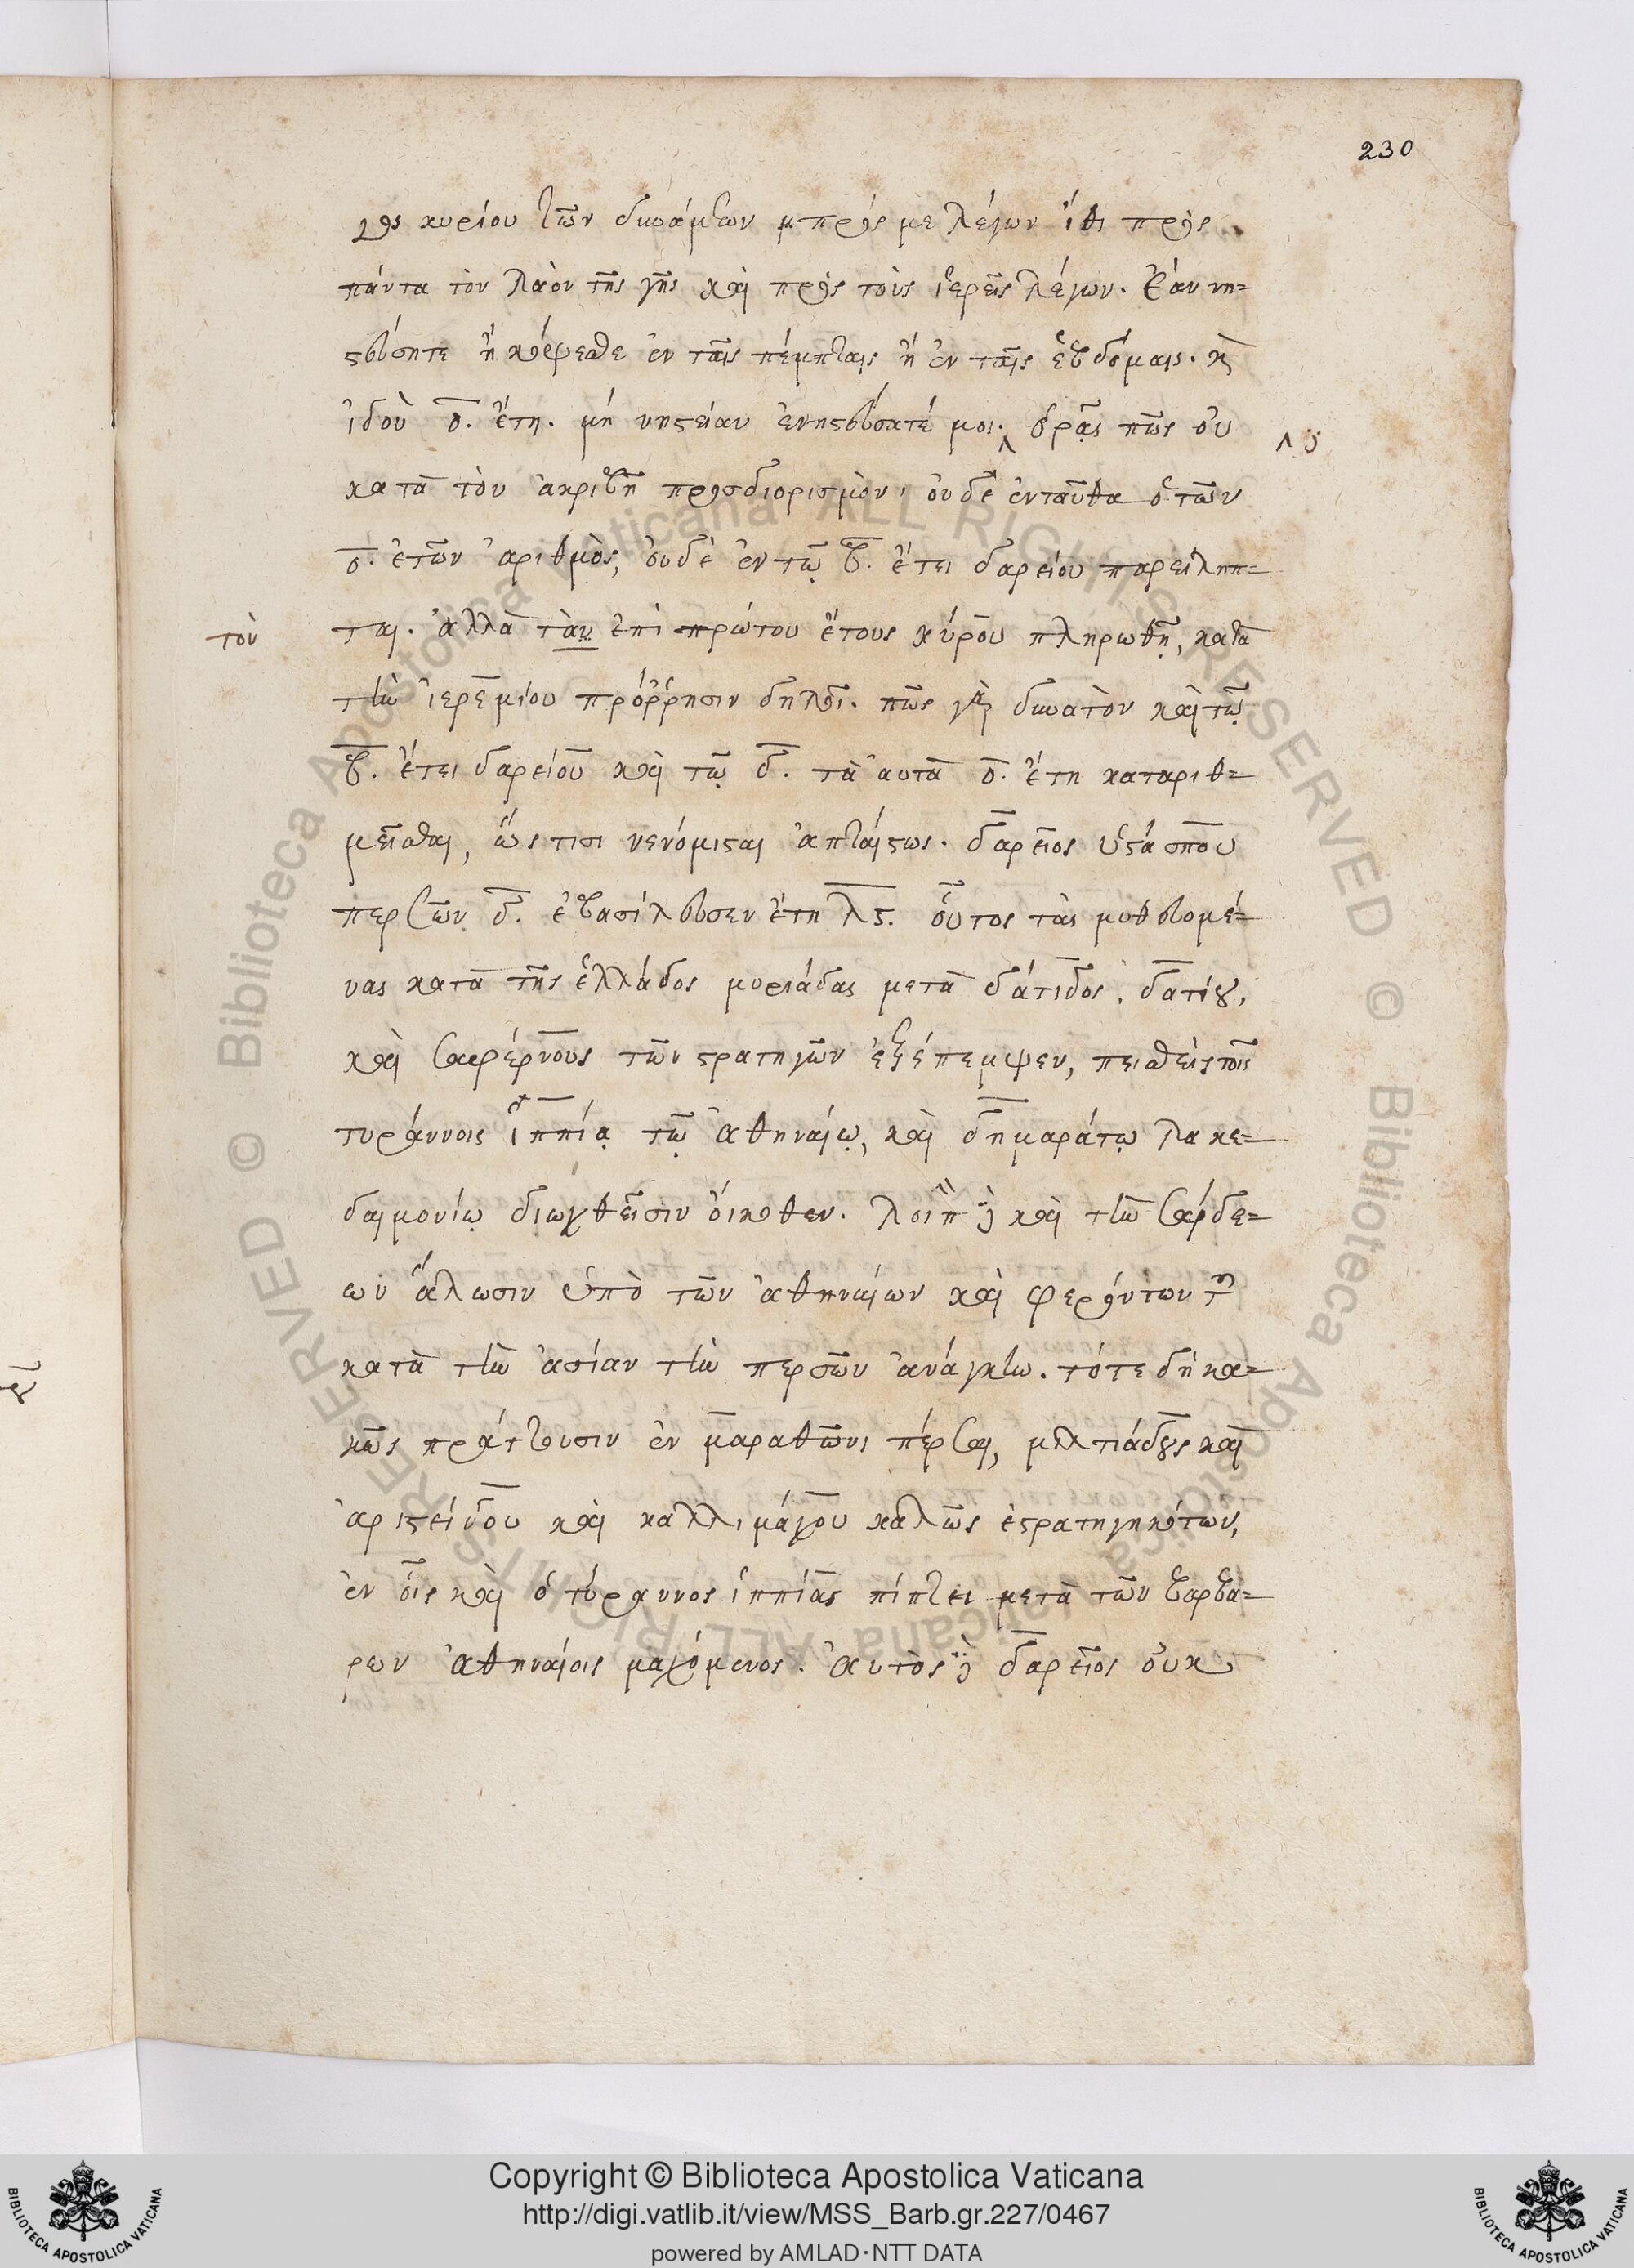 230
γος κυρίου τῶν δυνάμεων πρός με λέγων ἴθι πρὸς
πάντα τὸν λαὸν τῆς γῆς καὶ πρὸς τοὺς ἱερεῖς λέγων. Ἐὰν νη=
στεύσητε ἢ κόψεσθε ἐν ταῖς πέμπταις ἢ ἐν ταῖς ἑβδόμαις. κὶ
ἰδοὺ ο. ἔτη. μὴ νηστείαν ἐνηστεύσατέ μοι. ὁρᾷς πῶς οὐ
κατὰ τὸν ἀκριβῆ προσδιορισμὸν, οὐδὲ ἐνταῦθα ὁ τῶν
ο. ἐτῶν ἀριθμὸς, οὐδὲ ἐν τῷ β. ἔτει δαρείου παρείληπ=
τον
ται. ἀλλὰ τὰν ἐπὶ πρώτου ἔτους κύρου πληρωθῇ, κατὰ
τὴν ἱερεμίου πρόῤῥησιν δηλοῖ. πῶς γὰρ δυνατὸν καὶ τῷ
β. ἔτει δαρείου καὶ τῷ δ. τὰ αὐτὰ ο. ἔτη καταριθ=
μεῖσθαι, ὥς τισι νενόμισται ἀπταίστως. δαρεῖος ὑστάσπου
περσῶν δ. ἐβασίλευσεν ἔτη λς. οὗτος τὰς μυθευομέ=
νας κατὰ τῆς ἑλλάδος μυριάδας μετὰ δάτιδος. δατίου,
καὶ σαφέρνους τῶν στρατηγῶν ἐξέπεμψεν, πεισθεὶς τοῖς
τυράννοις ἱππίᾳ τῷ ἀθηναίῳ, καὶ δημαράτῳ λακε=
δαιμονίῳ διωχθεῖσιν οἴκοθεν. λοιπὸν δὲ καὶ τὴν σάρδε=
ων ἅλωσιν ὑπὸ τῶν ἀθηναίων καὶ φερόντων τὴν
κατὰ τὴν ἀσίαν τὴν περσῶν ἀνάγκην. τότε δὴ κα=
κῶς πράττουσιν ἐν μαραθῶνι πέρσαι, μιλτιάδους καὶ
ἀριστείδου καὶ καλλιμάχου καλῶς ἐστρατηγηκότων,
ἐν οἷς καὶ ὁ τύραννος ἱππίας πίπτει μετὰ τῶν βαρβά=
ρων ἀθηναίοις μαχόμενος. αὐτὸς δὲ δαρεῖος οὐκ
Copyright © Biblioteca Apostolica Vaticana
http://digi.vatlib.it/view/MSS_Barb.gr.227/0467
powered by AMLAD·NTT DATA